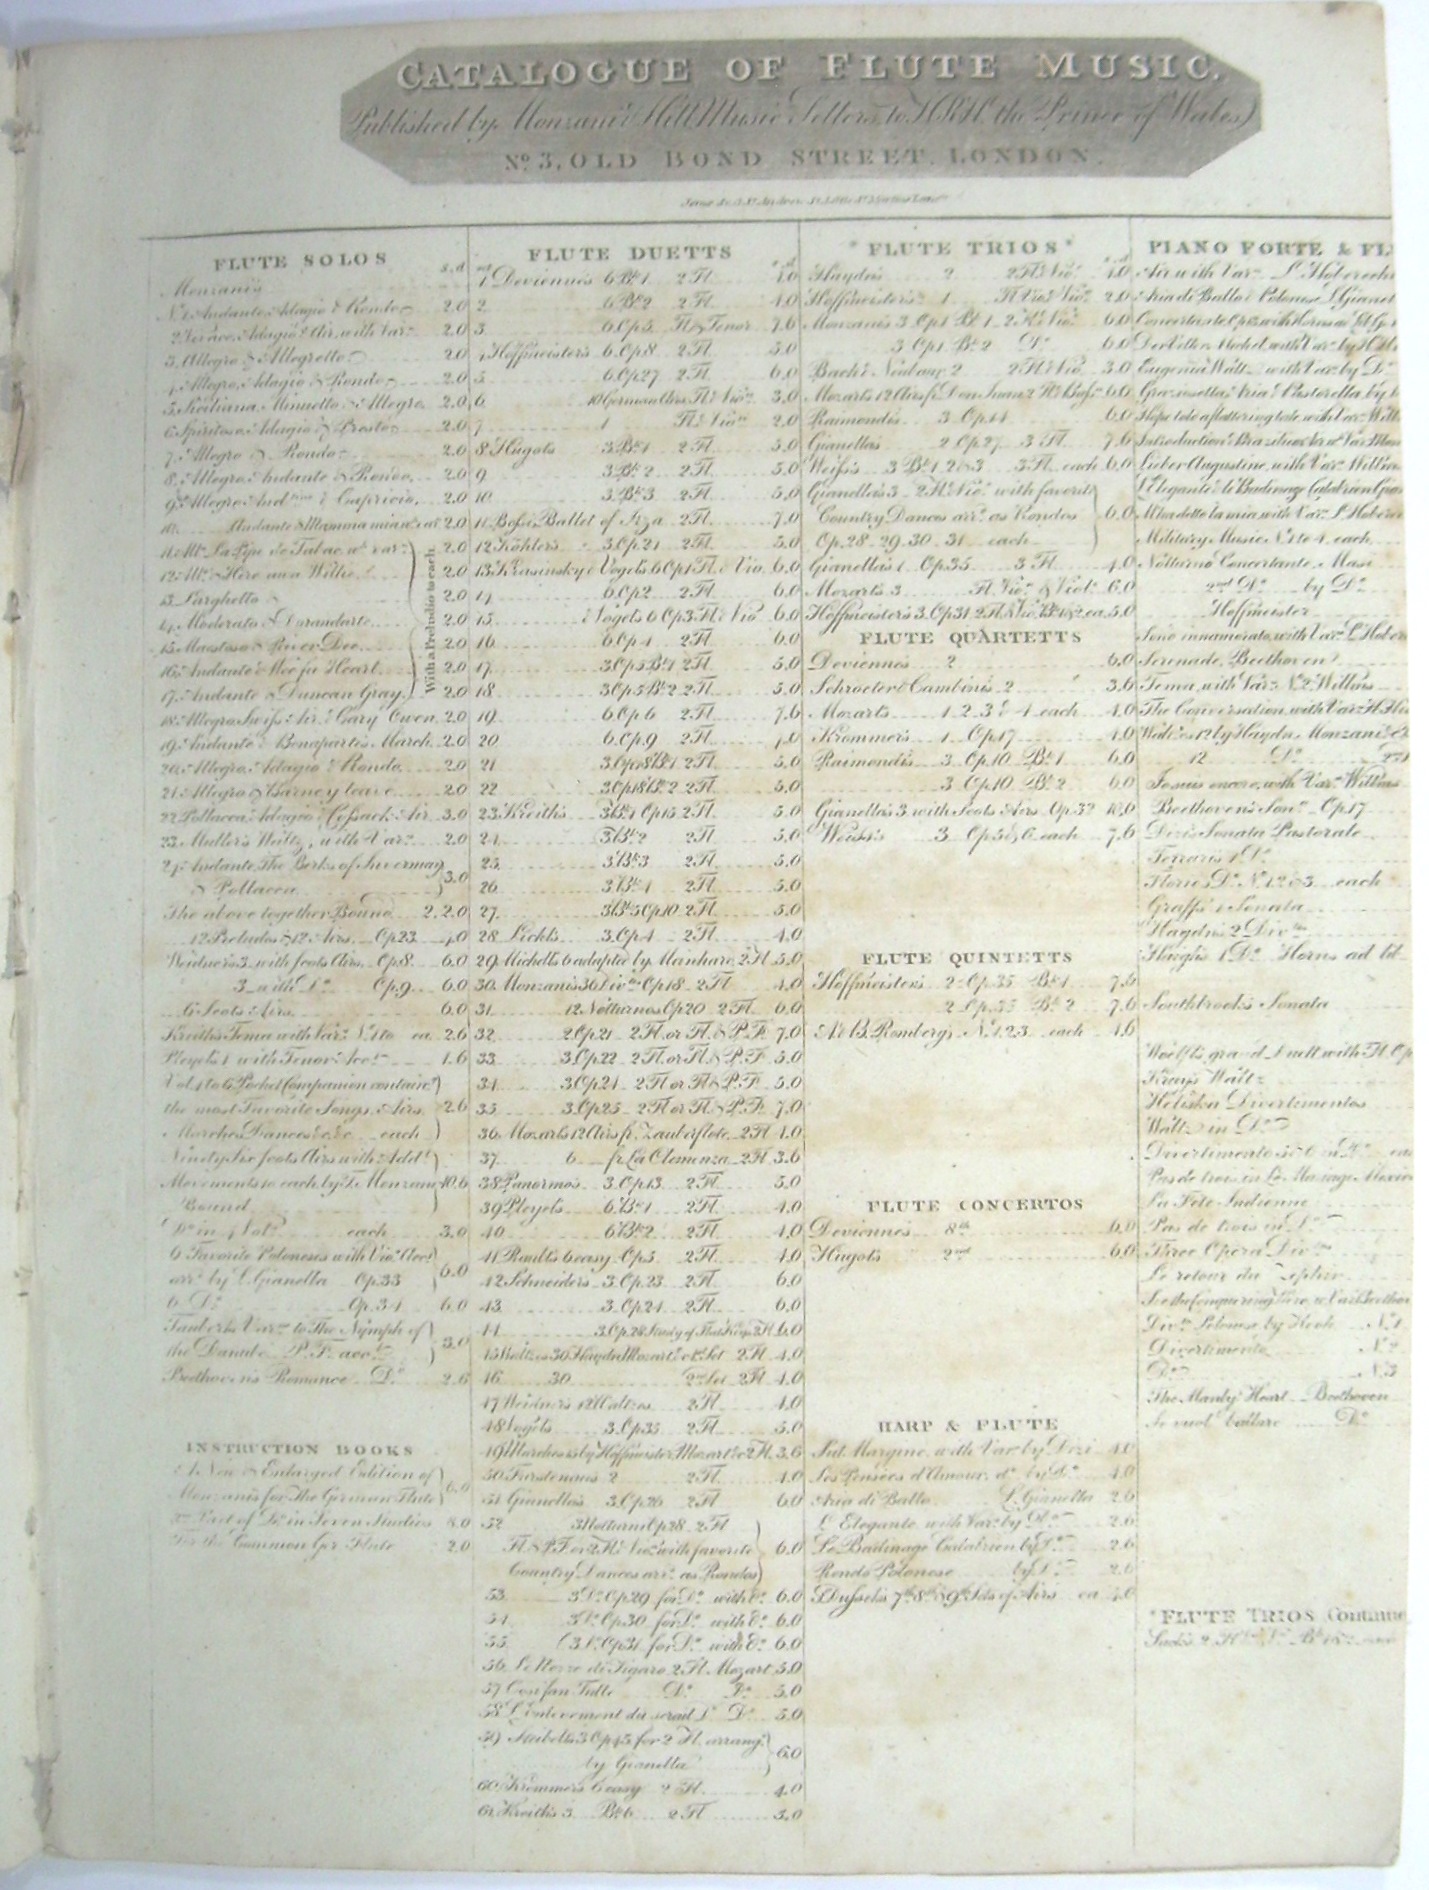 CATALOGUE OF FLUTE MUSIC.
Published by Monzani & Hill Music Sellers to H.R.H. the Prince of Wales)
No. 3, OLD BOND STREET, LONDON.
FLUTE SOLOS
s. d
Monzani's
No. 1 Andante, Adagio & Rondo 2.0
Adagio & Air with Var. 2.0
3. Allegro & Allegretto 2.0
4. Allegro, Adagio & Rondo 2.0
5. Siciliana, Minuetto & Allegro 2.0
6. Spiritoso, Adagio & Presto 2.0
7. Allegro & Rondo 2.0
8. Allegro, Andante & Rondo 2.0
9. Allegro And. & Capricio. 2.0
10. Andante & Mamma mia 2.0
11. La Pipe de Tabac wt. var. 2.0
12. Here awa Willie 2.0
13. Larghetto 2.0
14. Moderato & Durandarte 2.0
15. Maestoso & River Dee 2.0
16. Andante & Wee ju Heart 2.0
17. Andante & Duncan Gray 2.0
With a Preludio to each
18. Allegro Swiss Air & Gary Owen 2.0
19. Andante & Bonaparte's March 2.0
20. Allegro, Adagio & Rondo 2.0
21. Allegro & Barney leave 2.0
22. Pollacca Adagio & Cossack Air 3.0
23. Muller's Waltz, with Var. 2.0
24. Andante The Berks of Invermay
& Pollacca 3.0
The above together Bound 2.2.0
12 Preludes & 12 Airs Op 23 4.0
Weidner's 3 with Scots Airs. Op 8. 6.0
3 with Do. Op 9. 6.0
6 Scots Airs 6.0
Kreith's Tema with Var. No. 1 to ea. 2.6
Pleyel's 1 with Tenor Acct. 1.6
Vol. 1 to 6 Pocket Companion containg.
the most Favorite Songs, Airs 2.6
Marches Dances &c &c each
Ninety Six Scots Airs with Addl.
Movements to each by T. Monzani 10.6
Bound
Do. in 4 Vols. each 3.0
6 Favorite Poloneses with Vio. Acct.
arr. by L. Gianella Op. 33 6.0
6 Do. Op. 34 6.0
Var. to The Nymph of
the Danube P.F. acc. 3.0
Beethoven's Romance Do. 2.6
INSTRUCTION BOOKS
A New & Enlarged Edition of
Monzani's for The German Flute
Part of Do. in Seven Studies 8.0
For the Common Ger. Flute 2.0
FLUTE DUETTS
1 Devienne's 6 Bk 1 2 Fl. 4.0
2 6 Bk 2 2 Fl. 4.0
3 6 Op 5 Fl & Tenor 7.6
4 Hoffmeister's 6 Op 8 2 Fl. 5.0
5 6 Op 27 2 Fl. 6.0
6 10 German Airs Fl & Vio. 3.0
7 1 Fl & Vio. 2.0
8 Hugot's 3 Bk 1 2 Fl. 5.0
9 3 Bk 2 2 Fl. 5.0
10 3 Bk 3 2 Fl. 5.0
11 Bossi's Ballet of 2 Fl. 7.0
12 Köhler's 3 Op 21 2 Fl. 5.0
13 Krasinsky & Vogel's 6 Op 1 Fl. & Vio. 6.0
14 6 Op 2 2 Fl. 6.0
15 Vogel's 6 Op 3 Fl & Vio. 6.0
16 6 Op 4 2 Fl. 6.0
17 3 Op 5 Bk 1 2 Fl. 5.0
18 3 Op 5 Bk 2 2 Fl. 5.0
19 6 Op 6 2 Fl. 7.6
20 6 Op 9 2 Fl.
21 3 Op 18 Bk 1 2 Fl. 5.0
22 3 Op 18 Bk 2 2 Fl. 5.0
23 Kreith's 3 Bk 1 Op 15 2 Fl. 5.0
24 3 Bk 2 2 Fl. 5.0
25 3 Bk 3 2 Fl. 5.0
26 3 Bk 4 2 Fl. 5.0
27 3 Bk 5 Op 10 2 Fl. 5.0
28 Lickl's 3 Op 4 2 Fl. 4.0
29 Michell's 6 adapted by Manhare 2 Fl 5.0
30 Monzani's 36 Div. Op 18 2 Fl. 4.0
31 12 Notturnos Op 20 2 Fl. 6.0
32 2 Op 21 2 Fl. or Fl. & P.F. 7.0
33 3 Op 22 2 Fl. or Fl. & P.F. 5.0
34 3 Op 24 2 Fl or Fl & P.F. 5.0
35 3 Op 25 2 Fl or Fl. & P.F. 7.0
36 Mozart's 12 Airs fr. Zauberflote 2 Fl 4.0
37 6 fr La Clemenza 2 Fl 3.6
38 Panormo's 3 Op 13 2 Fl. 5.0
39 Pleyel's 6 Bk 1 2 Fl. 4.0
40 6 Bk 2 2 Fl. 4.0
41 Rault's 6 easy Op 5 2 Fl. 4.0
42 Schneider's 3 Op 23 2 Fl. 6.0
43 3 Op 24 2 Fl. 6.0
44 3 Op 28 Study of The Keys 2 Fl 6.0
45 Waltzes 30 Haydn Mozart &c 1st Set 2 Fl 4.0
46 30 2nd Set 2 Fl 4.0
47 Weidner's 12 Waltzes 2 Fl 4.0
48 Vogel's 3 Op 35 2 Fl. 5.0
49 Marches 15 by Hoffmeister Mozart &c 2 Fl. 3.6
50 Furstenau's 2 2 Fl. 4.0
51 Gianella's 3 Op 26 2 Fl 6.0
52 3 Notturni Op 28 2 Fl
Fl & P.F or 2 Fl & Vio. with favorite 6.0
Country Dances arr. as Rondos
53 3 Do. Op 29 for Do. with Do. 6.0
54 3 Do. Op 30 for Do. with Do. 6.0
55 3 Do. Op 31 for Do. with Do. 6.0
56 Le Nozze di Figaro 2 Fl. Mozart 5.0
57 Cosi fan Tutte Do. Do. 5.0
58 L'Enlevement du serail Do. Do. 5.0
59 Steibelt's 3 Op 45 for 2 Fl. arrang.
by Gianella 6.0
60 Krommer's 6 easy 2 Fl. 4.0
61 Kreith's 3 Bk 6 2 Fl 3.0
* FLUTE TRIOS *
Haydn's 2 2 Fl & Vio. 4.0
Hoffmeister's 1 Fl Vio & Vio. 2.0
Monzani's 3 Op 1 Bk 1 2 Fl & Vio. 6.0
3 Op 1 Bk 2 Do. 6.0
Bach & Neubaur 2 2 Fl & Vio. 3.0
Mozart's 12 Airs fr. Don Juan 2 Fl & Bass 6.0
Raimondi's 3 Op. 14 6.0
Gianella's 2 Op. 27 3 Fl. 7.6
Weiss's 3 Bk 1 2 & 3 3 Fl. each 6.0
Gianella's 3 2 Fl & Vio. with favorite
Country Dances arr. as Rondos 6.0
Op. 28. 29. 30. 31 each
Gianella's 1 Op. 35 3 Fl. 4.0
Mozart's 3 Fl. Vio. & Viol. 6.0
Hoffmeister's 3 Op 31 2 Fl & Vio. Bk 1 & 2 ea. 5.0
FLUTE QUARTETTS
Devienne's 2 6.0
Schroeter & Cambini's 2 3.6
Mozart's 1 2 3 & 4 each 4.0
Krommer's 1 Op 17 4.0
Raimondi's 3 Op. 10 Bk 1 6.0
3 Op. 10 Bk 2 6.0
Gianella's 3 with Scots Airs Op. 32 10.0
Weiss's 3 Op. 5 & 6 each 7.6
FLUTE QUINTETTS
Hoffmeister's 2 Op. 35 Bk 1 7.6
2 Op. 35 Bk 2 7.6
A. & B. Romberg's No. 1 2 3 each 4.6
FLUTE CONCERTOS
Devienne's 8th 6.0
Hugot's 2nd 6.0
HARP & FLUTE
Sul Margine with Var. by Dizi 4.0
Les Pensees d'Amour do. by Do. 4.0
Aria di Ballo L. Gianella 2.6
L'Elegante with Var. by Do. 2.6
Le Badinage Calabrien by Do. 2.6
Rondo Polonese by Do. 2.6
Dussek's 7th 8th & 9th Sets of Airs ea 4.0
PIANO FORTE & FL
Air with Var.
Aria di Ballo & Polonese L. Gianel
Concertante Op 12 with Horns ad lib
with Var. by
Eugenia Waltz with Var. by Do.
Aria & Pastorella by
Hope told a flattering tale with Var. Will
Introduction & Brazilian Air wt. Var. Mon
Lieber Augustine with Var. Willm
L'Elegante & le Badinage Calabrien Gia
with Var.
Military Music No. 1 to 4 each
Notturno Concertante Masi
2nd Do. by Do.
Hoffmeister
Sono innamorata with Var.
Serenade Beethoven
Tema with Var. No. 2 Willms
The Conversation with Var.
Waltzes 12 by Haydn Monzani &
12 Do. 2nd
with Var. Willms
Beethoven's Son. Op. 17
Dizi's Sonata Pastorale
Ferrari's 1 Do.
Florio's Do. No. 1 2 & 3 each
Graff's 1 Sonata
Haydn's 2 Div.
Haigh's 1 Do. Horns ad lib
Southbrook's Sonata
Woelfl's grand Duett with Fl. Op
Waltz
Divertimentos
Waltz in Do.
Divertimento
Pas de trois in Le Mariage
La Fete Indienne
Pas de trois in Do.
Three Opera Div.
Le retour du Zephir
See the Conquering Hero wt. Var. Beethov
Div. Polonese by No. 1
Divertimento No. 2
Do. No. 3
The Manly Heart Beethoven
Se vuol ballare Do.
* FLUTE TRIOS Continue